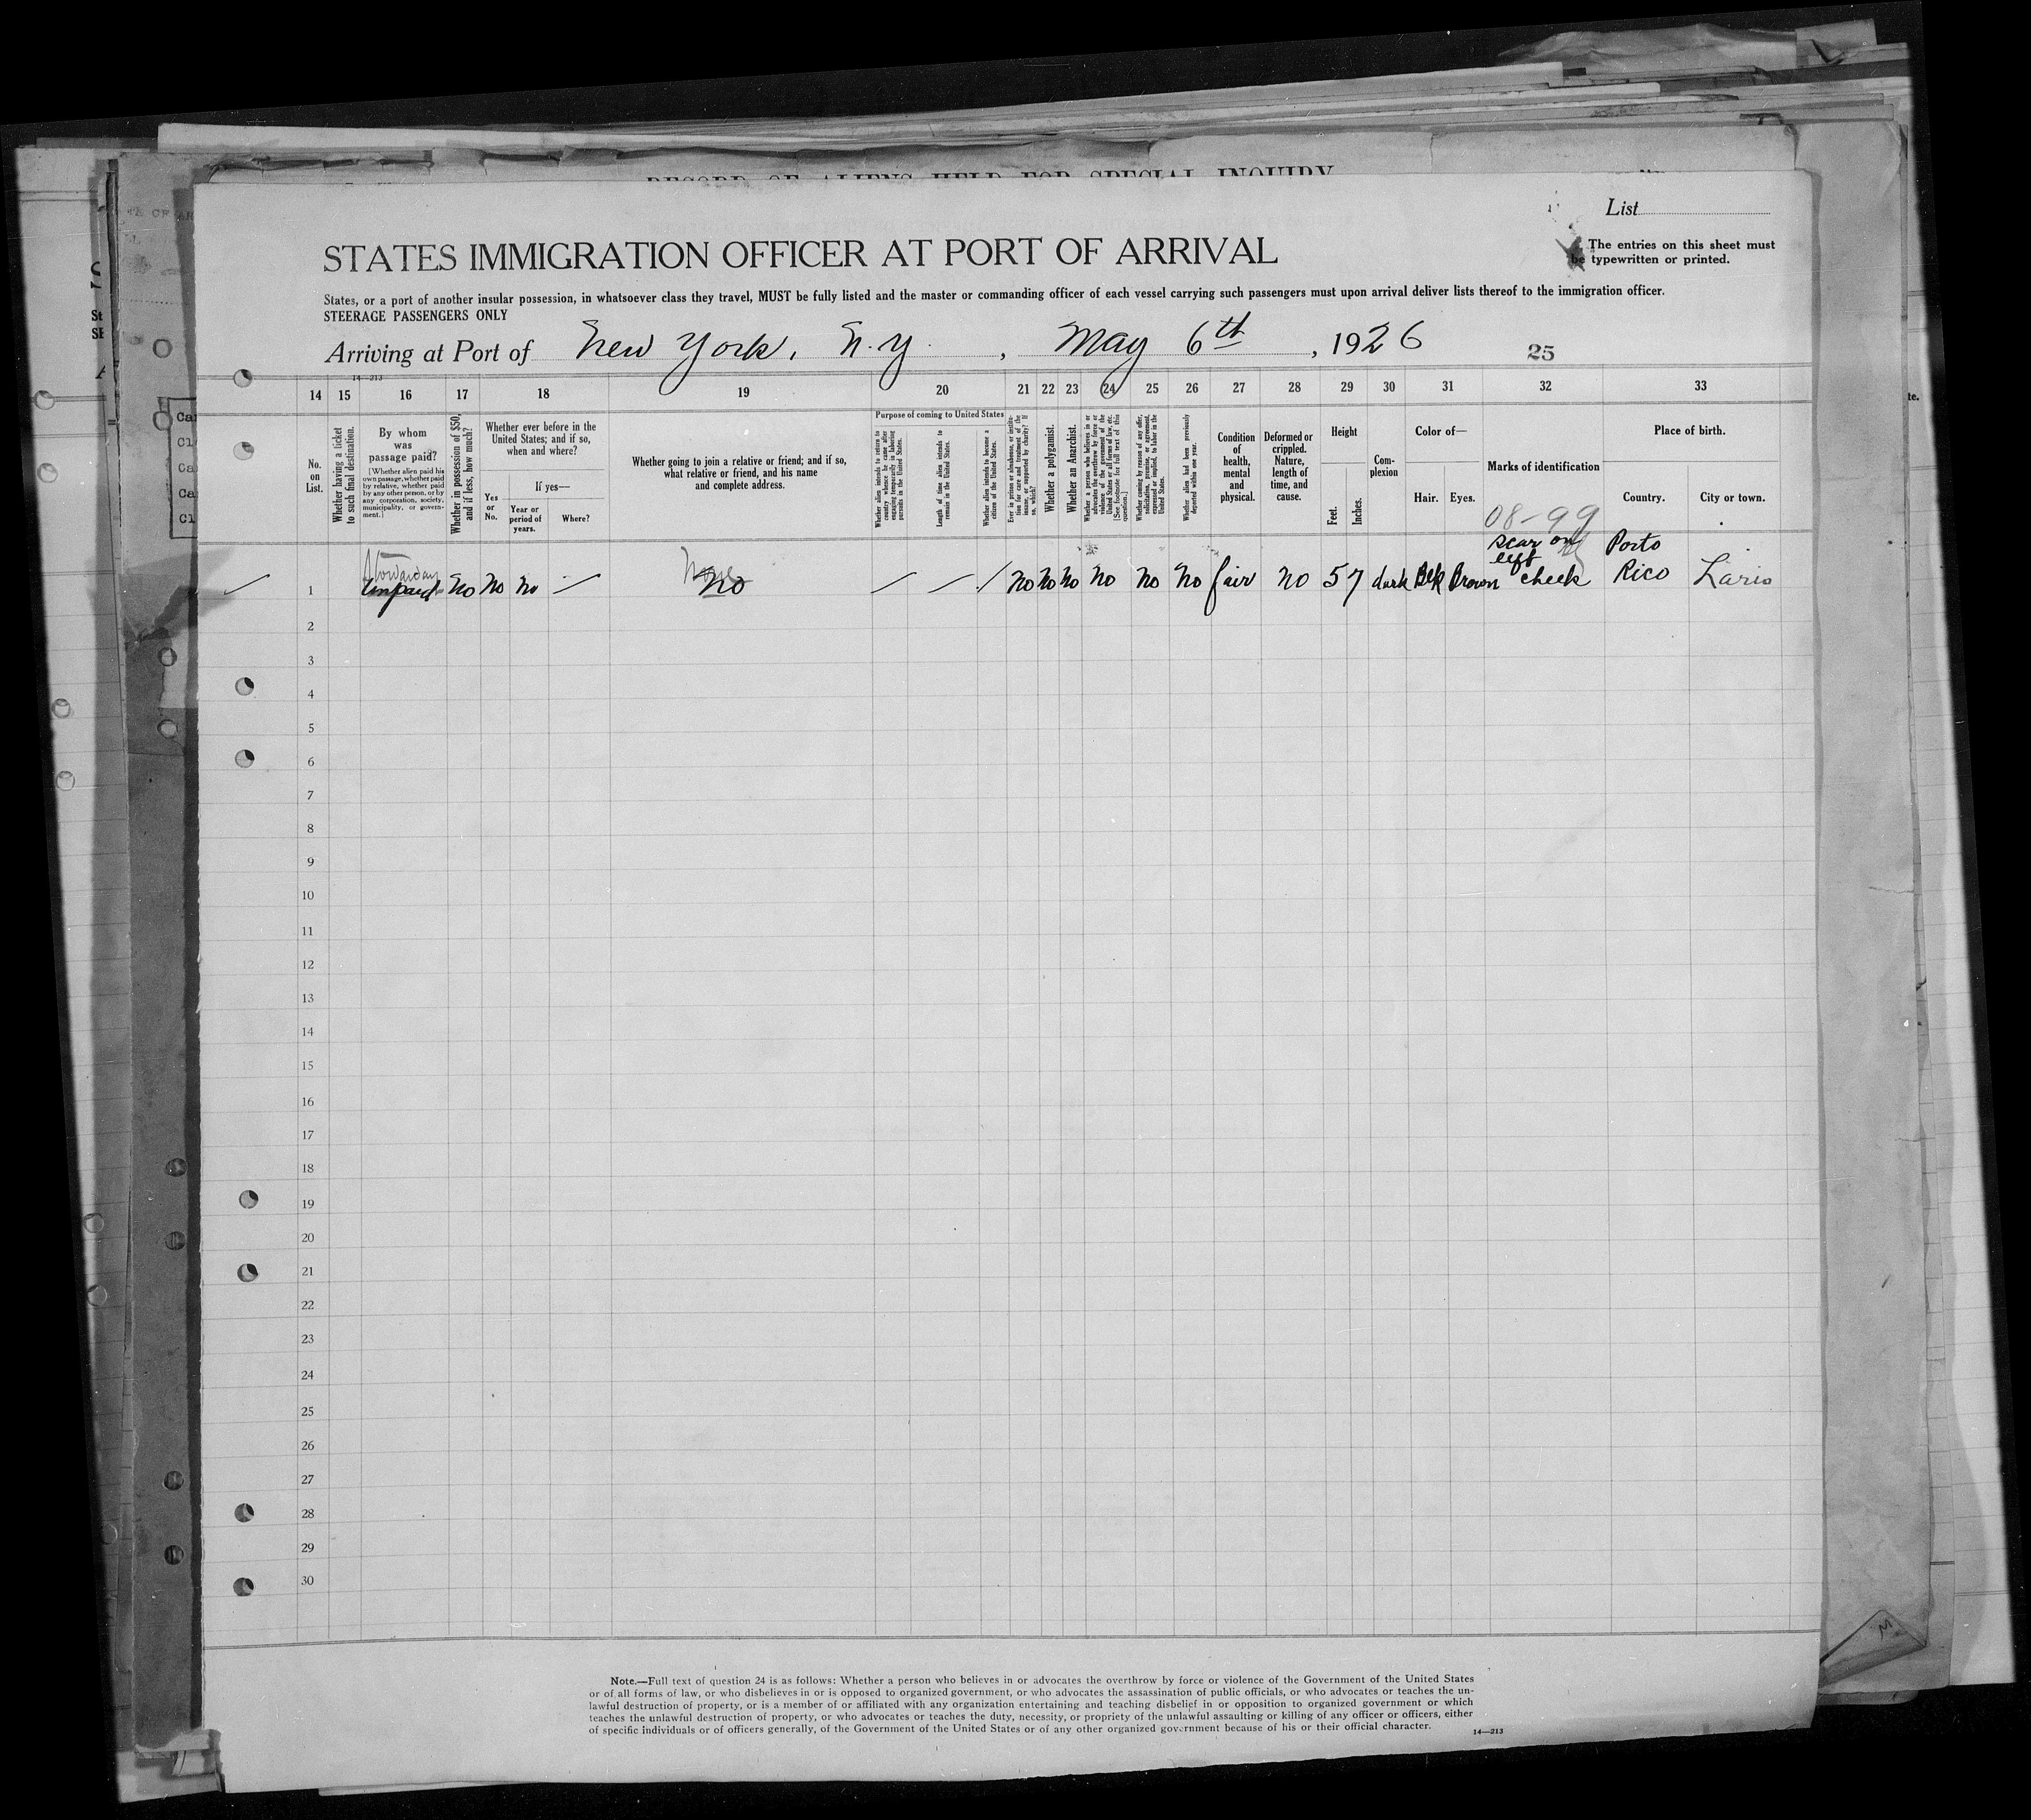 RECORD OF ALIENS HELD FOR SPECIAL INQUIRY
List
STATES IMMIGRATION OFFICER AT PORT OF ARRIVAL
The entries on this sheet must
be typewritten or printed.
States, or a port of another insular possession, in whatsoever class they travel, MUST be fully listed and the master or commanding officer of each vessel carrying such passengers must upon arrival deliver lists thereof to the immigration officer.
STEERAGE PASSENGERS ONLY
Arriving at Port of New York, N.Y., May 6th, 1926
25
14—213
14 15 16 17 18 19 20 21 22 23 24 25 26 27 28 29 30 31 32 33
No. on List.
Whether having a ticket to such final destination.
By whom was passage paid?
[Whether alien paid his own passage, whether paid by relative, whether paid by any other person, or by any corporation, society, municipality, or government.]
Whether in possession of $50, and if less, how much?
Whether ever before in the United States; and if so, when and where?
Yes or No.
If yes—
Year or period of years.
Where?
Whether going to join a relative or friend; and if so, what relative or friend, and his name and complete address.
Purpose of coming to United States
Whether alien intends to return to country whence he came after engaging temporarily in laboring pursuits in the United States.
Length of time alien intends to remain in the United States.
Whether alien intends to become a citizen of the United States.
Ever in prison or almshouse, or institution for care and treatment of the insane, or supported by charity? If so, which?
Whether a polygamist.
Whether an Anarchist.
Whether a person who believes in or advocates the overthrow by force or violence of the government of the United States or all forms of law, etc. [See footnote for full text of this question.]
Whether coming by reason of any offer, solicitation, promise, or agreement, expressed or implied, to labor in the United States.
Whether alien had been previously deported within one year.
Condition of health, mental and physical.
Deformed or crippled. Nature, length of time, and cause.
Height
Feet.
Inches.
Complexion
Color of—
Hair.
Eyes.
Marks of identification
Place of birth.
Country.
City or town.
08-99
1 Unpaid No No No No No No No No No No fair No 5 7 dark Blk Brown scar on left cheek Porto Rico Laris
2
3
4
5
6
7
8
9
10
11
12
13
14
15
16
17
18
19
20
21
22
23
24
25
26
27
28
29
30
Note.—Full text of question 24 is as follows: Whether a person who believes in or advocates the overthrow by force or violence of the Government of the United States
or of all forms of law, or who disbelieves in or is opposed to organized government, or who advocates the assassination of public officials, or who advocates or teaches the un-
lawful destruction of property, or is a member of or affiliated with any organization entertaining and teaching disbelief in or opposition to organized government or which
teaches the unlawful destruction of property, or who advocates or teaches the duty, necessity, or propriety of the unlawful assaulting or killing of any officer or officers, either
of specific individuals or of officers generally, of the Government of the United States or of any other organized government because of his or their official character.
14—213